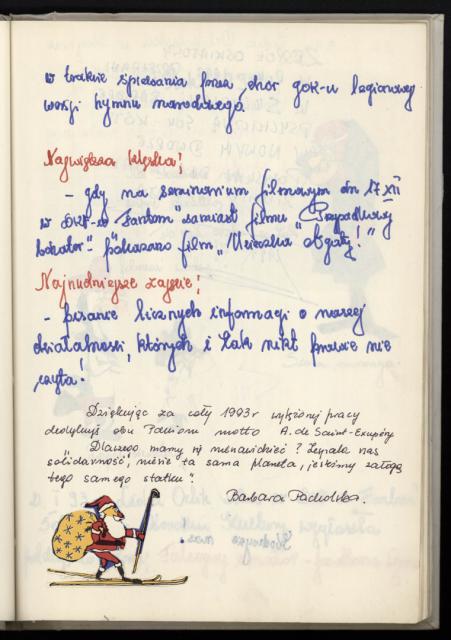 w trakcie śpiewania przez chór gok-u legionowej
wersji hymnu narodowego
Największa klęska!
– gdy na seminarium filmowym dn 17 XII
w DKF-ie "Fantom" zamiast filmu "Przypadkowy
lokator" – pokazano film "Ucieczka" obgały!"
Najnudniejsze zajęcie!
– pisanie licznych informacji o naszej
działalności, których i tak nikt prawie nie
czyta!
Dziękując za cały 1993 r wytężonej pracy
dedykuję obu Paniom motto A. de Saint-Exupéry
"Dlaczego mamy się nienawidzieć? Łączy nas
solidarność, niesie ta sama planeta, jesteśmy załogą
tego samego statku"
Barbara Pacholska